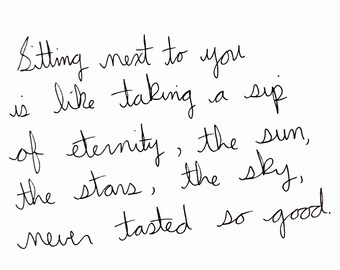 Sitting next to you
is like taking a sip
of eternity, the sun,
the stars, the sky,
never tasted so good.